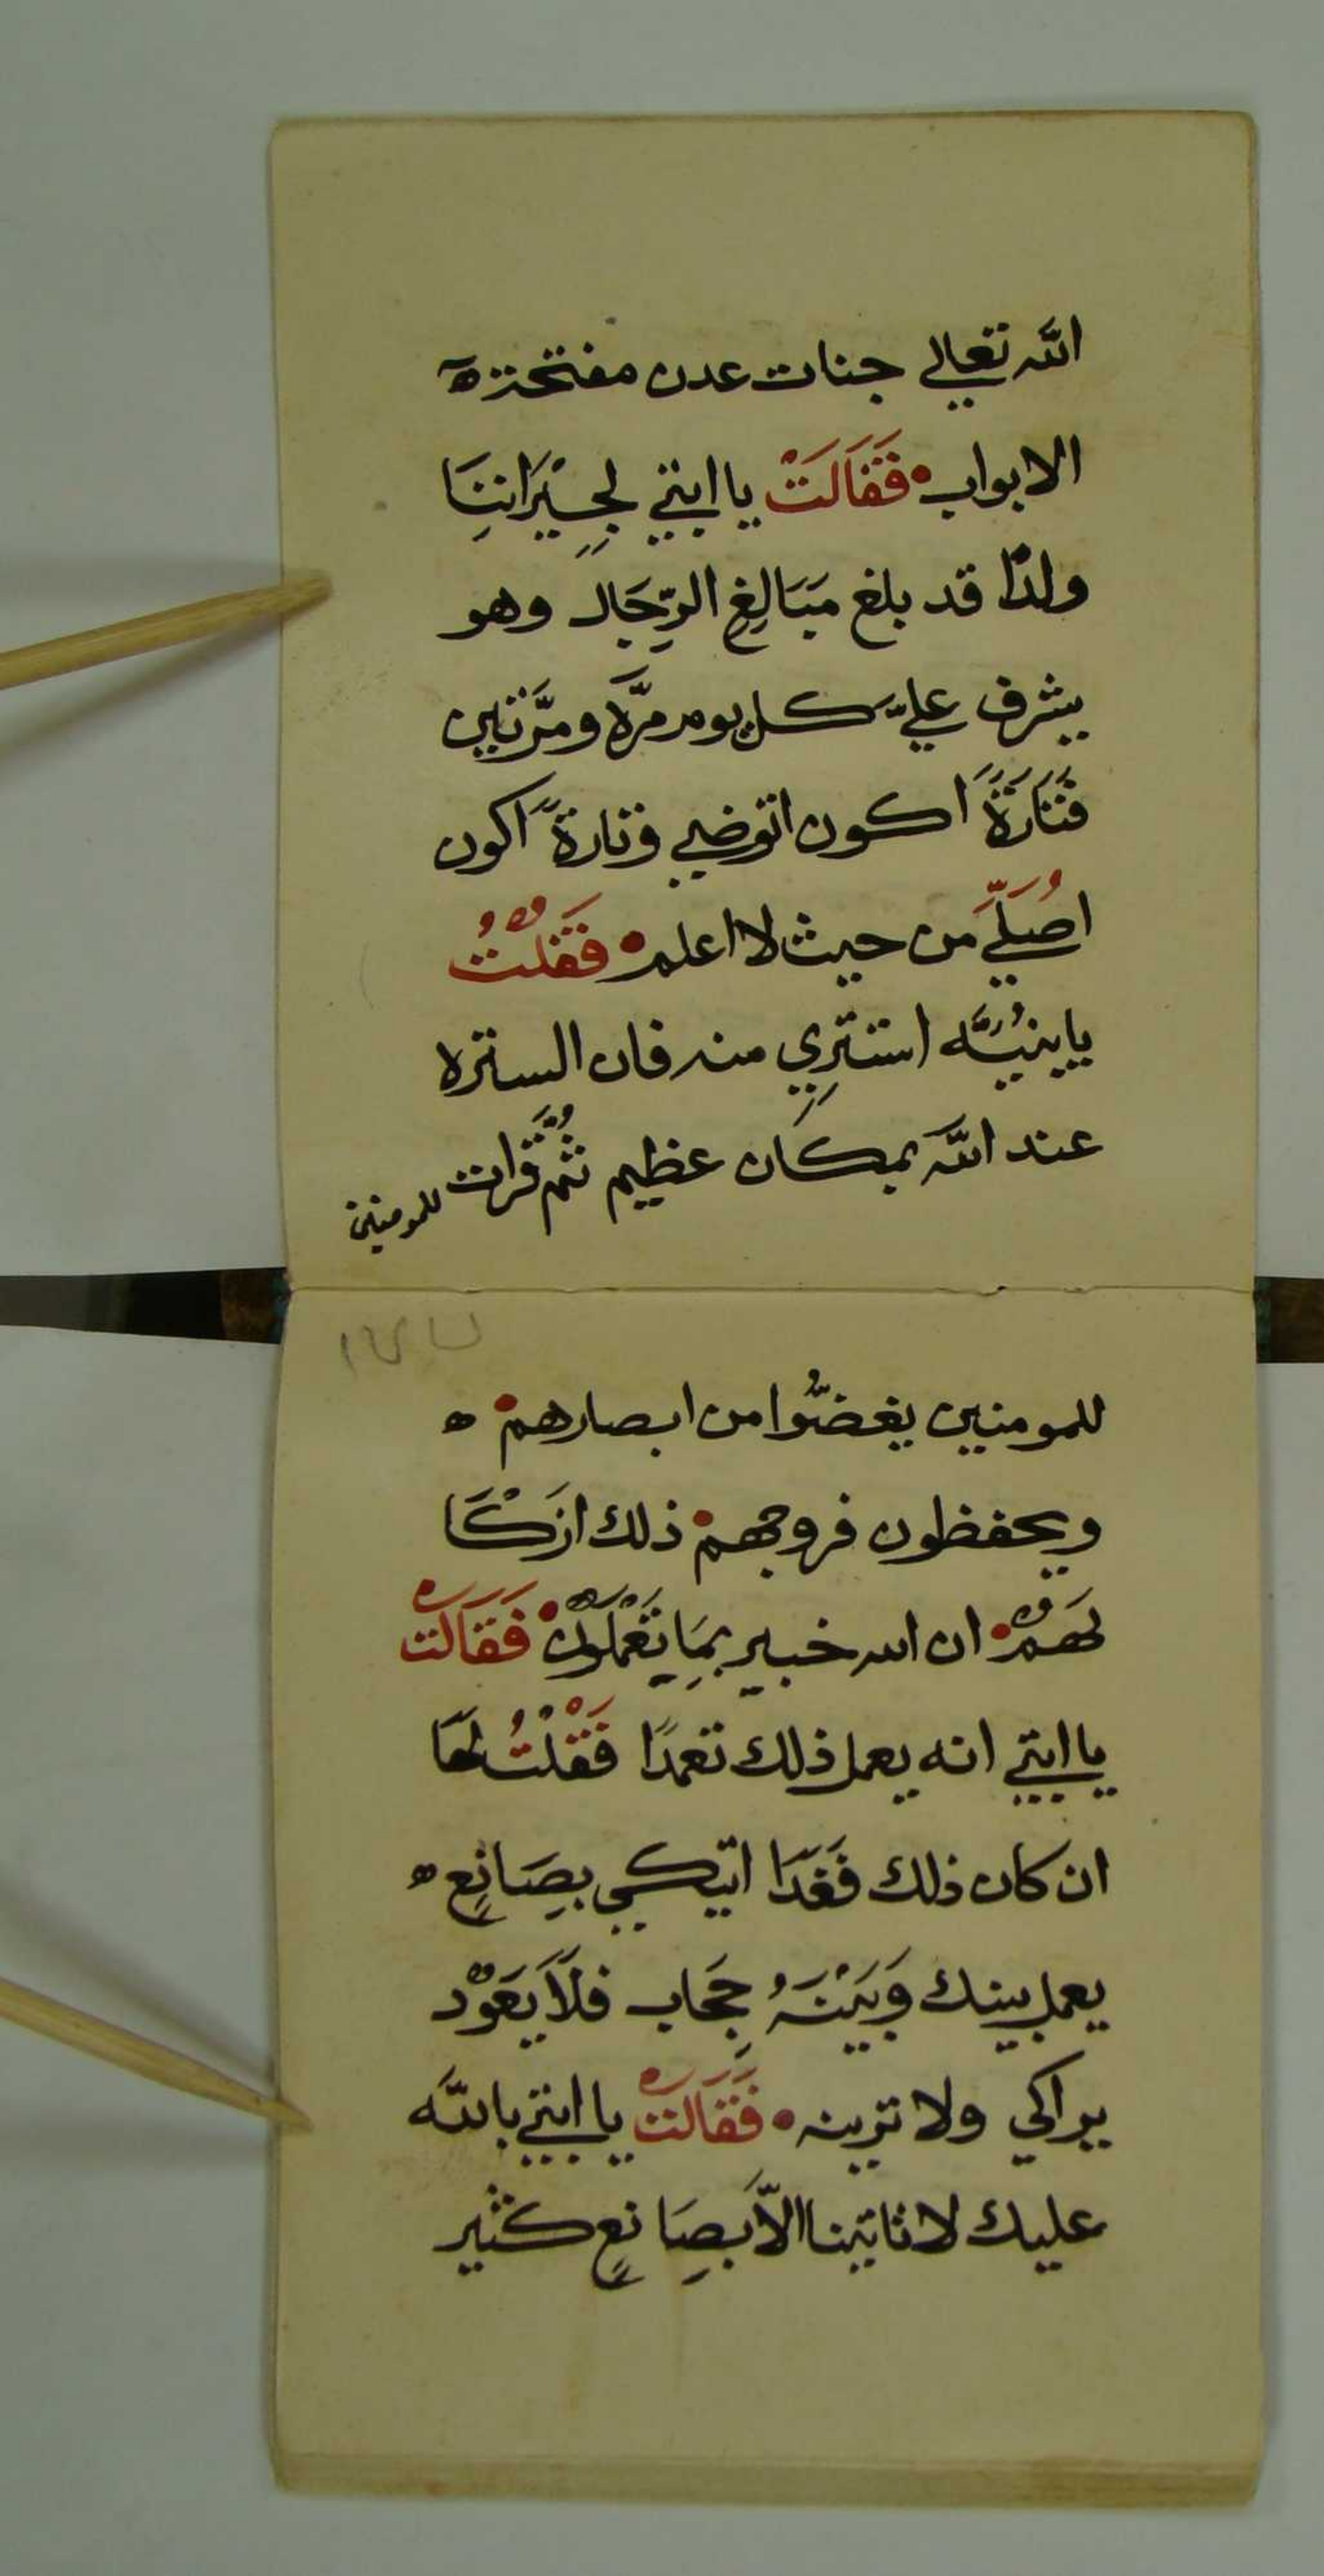 الله تعالي جنات عدن مفتحة
الابواب فَقَالَتْ يا ابتي لجِيْرَاننِا
ولدًا قد بلغ مَبَالِغِ الرِّجَال وهو
يشرف عليّ كل يوم مرَّة ومرَّتين
فَتَارَةً اكون اتوضي وتارةً اكون
اصُلّيَ من حيث لا اعلم فَقُلْتُ
يا بنيَّه استَتِرِي منه فان الستره
عند الله بمكان عظيم ثُمَّ قرات
للمومنين
١٢٧
للمومنين يغضُّوا من ابصارهم ه
ويحفظون فروجهم ذلك ازَكَا
لَهُمْ ان الله خبير بمِا يَعْمَلَوُنْ فَقَالَتْ
يا ابتي انه يعمل ذلك تعمدًا فَقُلْتُ لهَا
ان كان ذلك فَغَدًا اتيكي بصِانِعٍ ه
يعمل بينك وَبَيْنَهُ حِجَاب فلَا يَعَوُدْ
يراكي ولا ترينه فَقَالَتْ يا ابتي بالله
عليك لا تاتينا الاَّ بصِانعٍ كثير